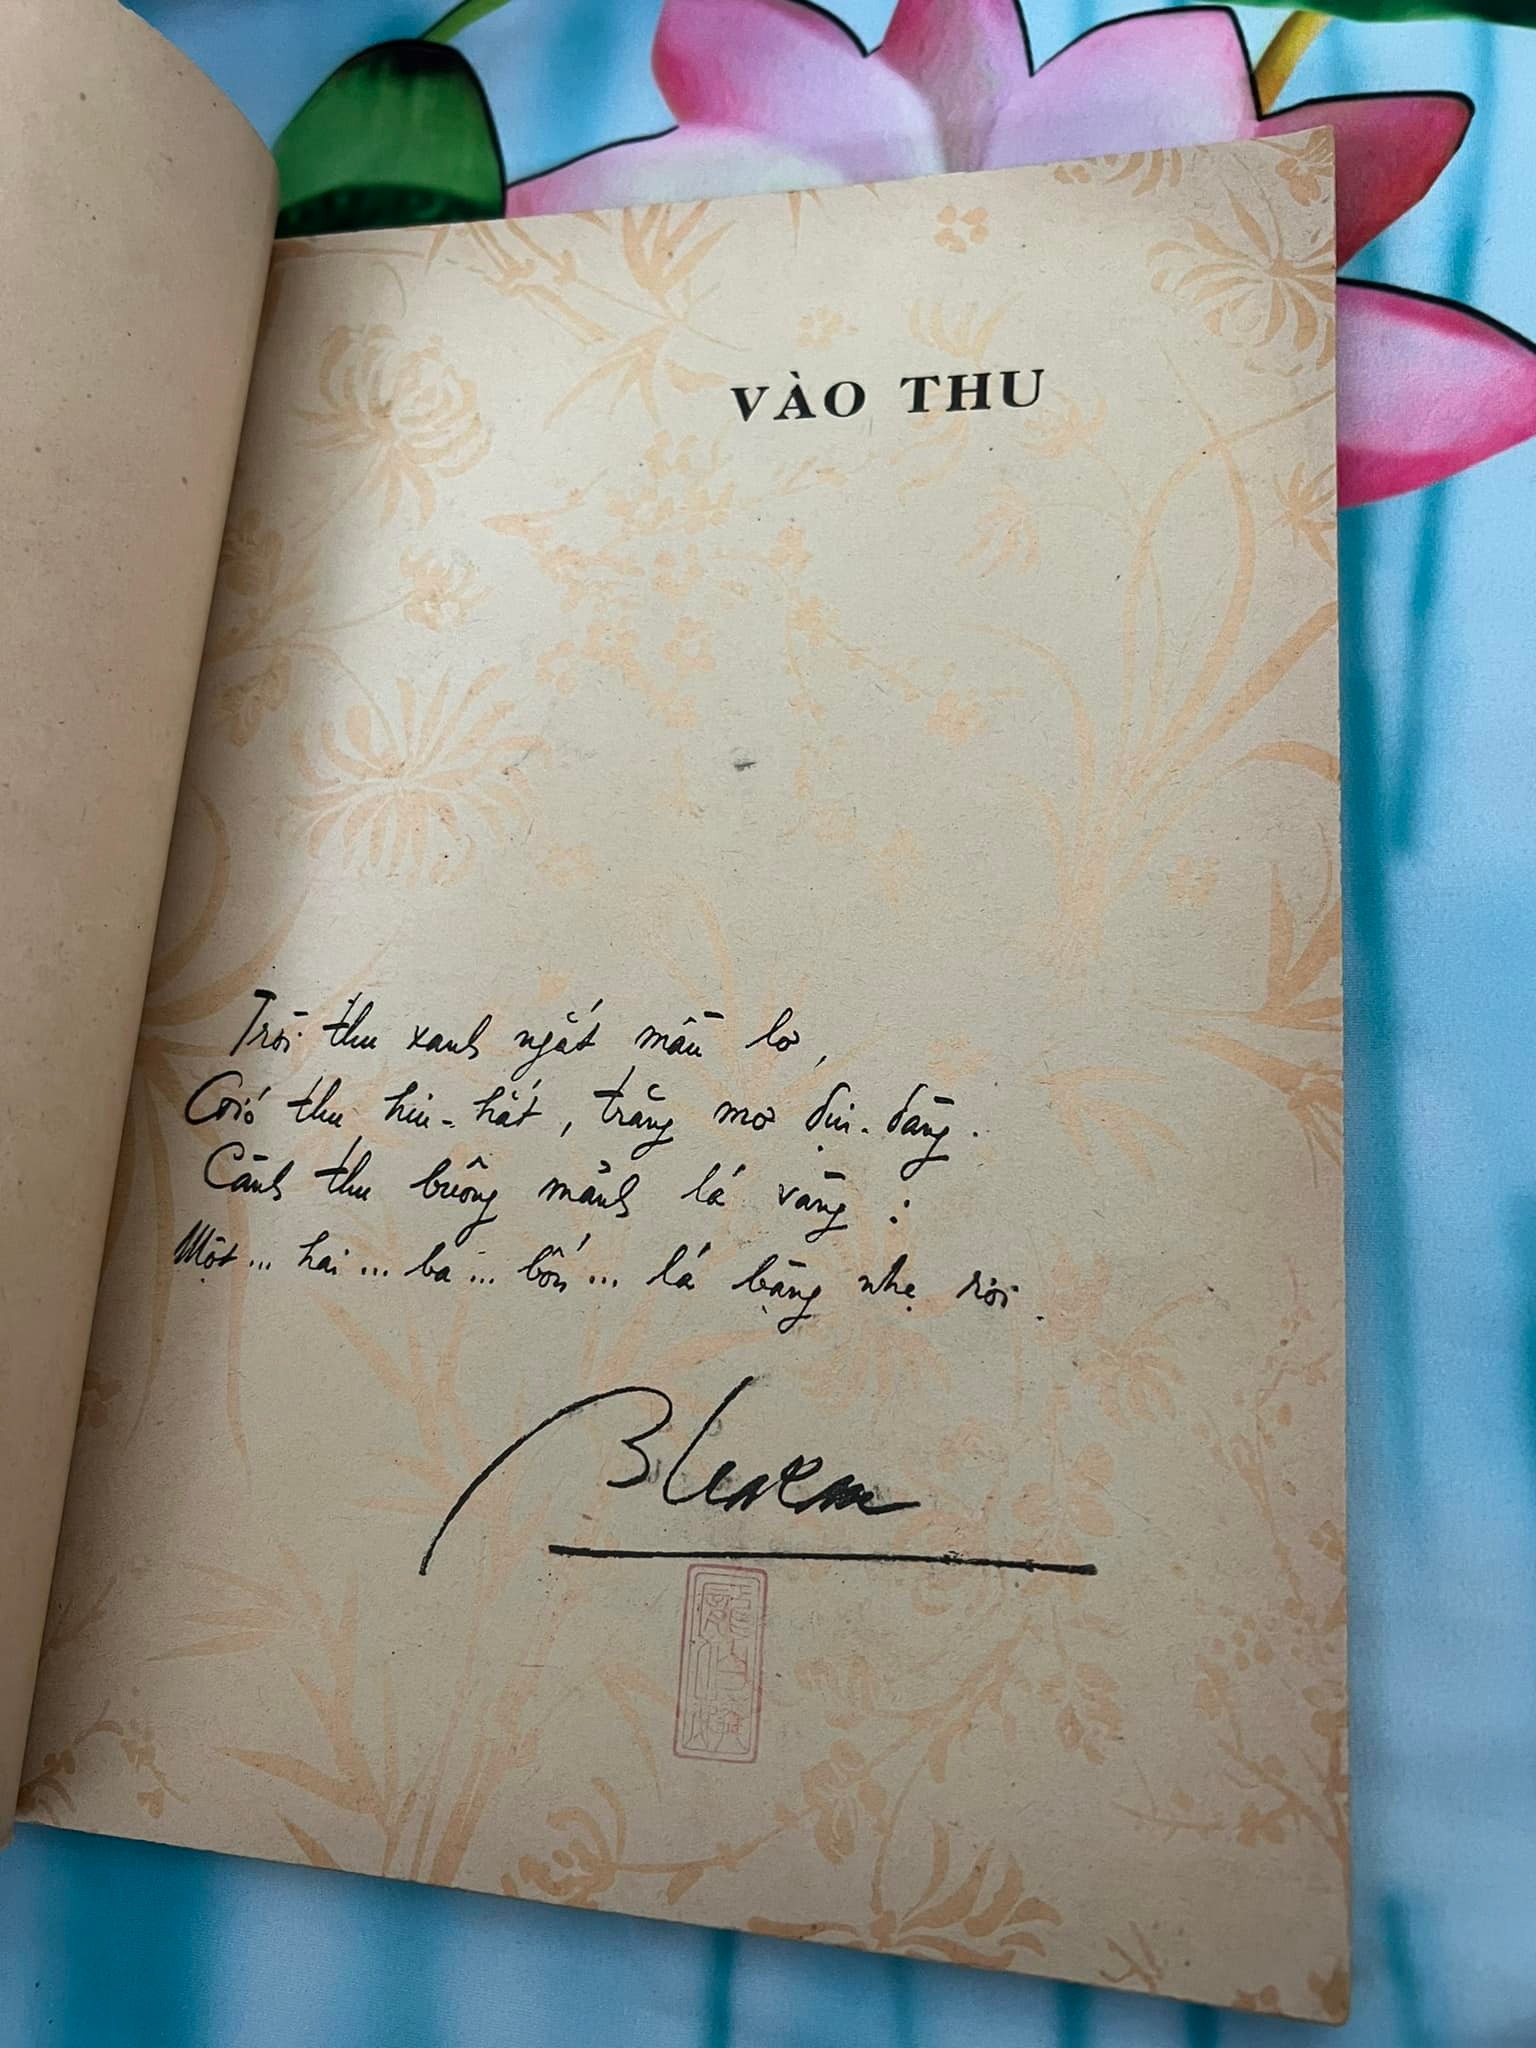 VÀO THU
Trời thu xanh ngắt mầu lơ,
Gió thu hiu-hắt, trăng mơ dịu-dàng.
Cành thu buông mảnh lá vàng :
Một... hai... ba... bốn... lá bàng nhẹ rơi.